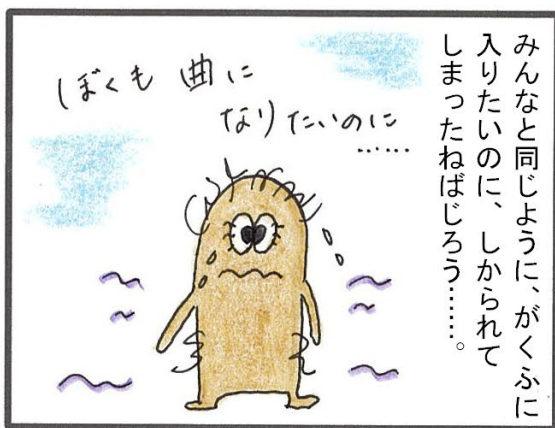 みんなと同じように、がくふに
入りたいのに、しかられて
しまったねばじろう……。
ぼくも 曲に
なりたいのに
……